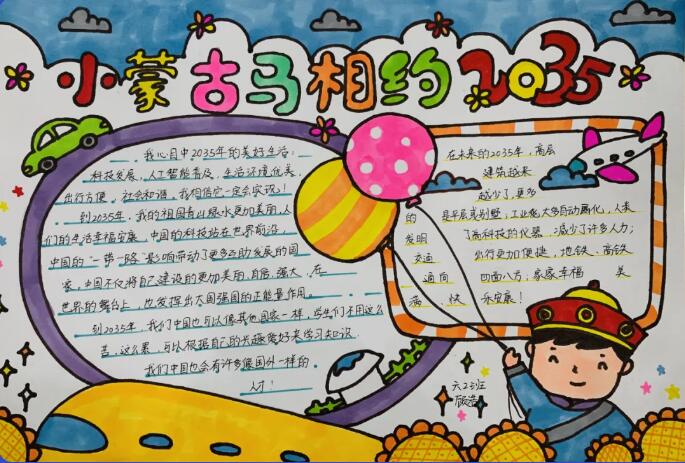 小蒙古马相约2035
我心目中2035年的美好生活:
科技发展、人工智能普及、生活环境优美、
出行方便、社会和谐。我相信它一定会实现!
到2035年,我的祖国青山绿水更加美丽,人
们的生活幸福安康,中国的科技站在世界前沿,
中国的“一带一路”影响带动了更多互助发展的国
家,出国不仅将自己建设的更加美丽、自信、强大、在
世界的舞台上,也发挥出大国强国的正能量作用。
到2035年,我们中国也可以像其他国家一样,学生们不用这么
苦,这么累,可以根据自己的兴趣爱好来学习知识
我们中国也会有许多像国外一样的
人才!
在未来的2035年,高层
建筑越来
越少了,更多
的是平层或别墅,工业能大多自动化,人类
发明了高科技的仪器,减少了许多人力;
交通出行更加便捷,地铁、高铁
通向四面八方;家家幸福美
满、快乐安康!
六2班